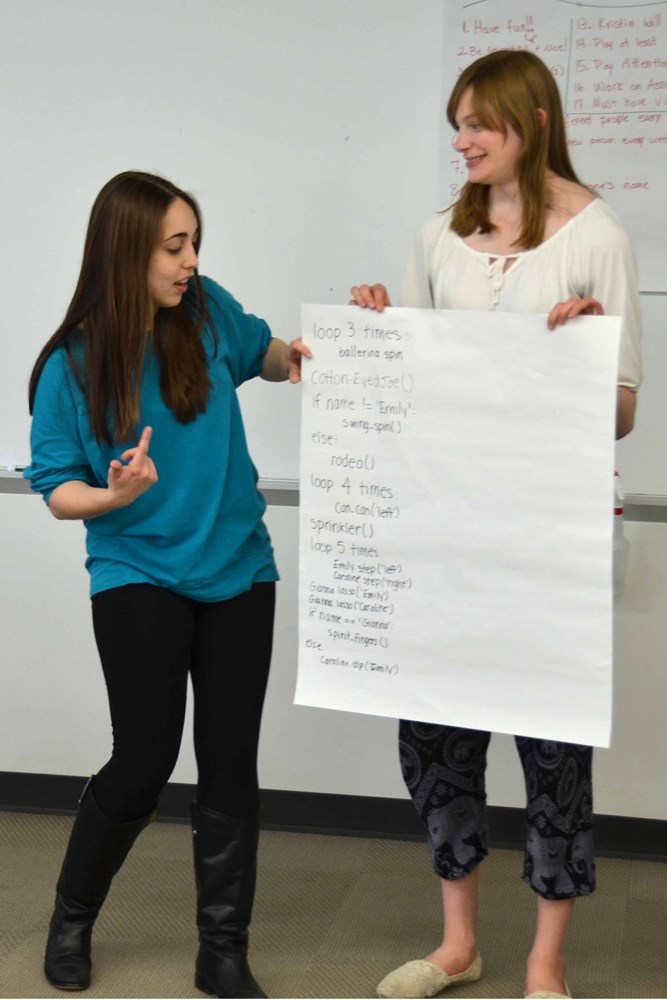 1. Have fun!!
2. Be + nice!
7.
8
13. Kristin will
14. Play at least
15. Pay Attention
16. Work on
17. Must have
people every
new person every
name
loop 3 times:
ballerina spin
Cotton-EyedJoe()
if name != "Emily":
swing_spin()
else:
rodeo()
loop 4 times:
Can_Can("left")
sprinkler()
loop 5 times:
Emily step("left")
Caroline step("right")
Gianna lasso("Emily")
Gianna lasso("Caroline")
if name == "Gianna":
spirit_fingers()
else
Caroline.dip("Emily")